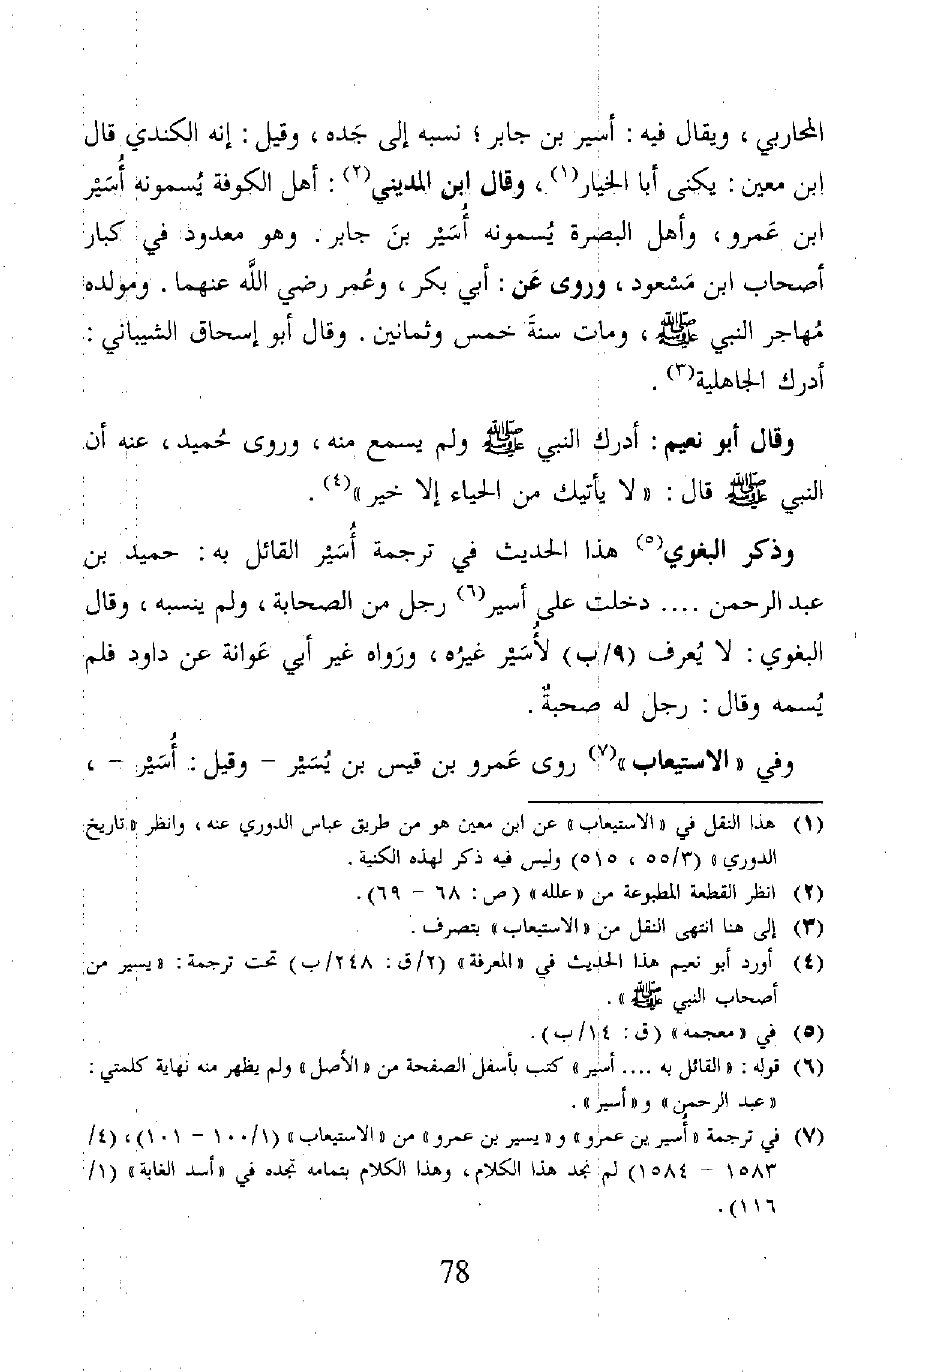 المحاربي ، ويقال فيه : أسير بن جابر ؛ نسبه إلى جَده ، وقيل : إنه الكندي قال
ابن معين : يكنى أبا الخيار(١) ، وقال ابن المديني(٢) : أهل الكوفة يُسمونه أُسَيْر
ابن عَمرو ، وأهل البصرة يُسمونه أُسَيْر بنَ جابر . وهو معدود في كبار
أصحاب ابن مَسْعود ، وروى عَن : أبي بكر ، وعُمر رضي اللَّه عنهما . ومولده
مُهاجر النبي ﷺ ، ومات سنةَ خمس وثمانين . وقال أبو إسحاق الشيباني :
أدرك الجاهلية(٣) .
وقال أبو نعيم : أدرك النبي ﷺ ولم يسمع منه ، وروى حُميد ، عنه أن
النبي ﷺ قال : « لا يأتيك من الحياء إلا خير »(٤) .
وذكر البغوي(٥) هذا الحديث في ترجمة أُسَيْر القائل به : حميد بن
عبد الرحمن .... دخلت على أسير(٦) رجل من الصحابة ، ولم ينسبه ، وقال
البغوي : لا يُعرف (٩/ب) لأُسَيْر غيرُه ، ورَواه غير أبي عَوانة عن داود فلم
يُسمه وقال : رجل له صحبةٌ .
وفي « الاستيعاب »(٧) روى عَمرو بن قيس بن يُسَيْر – وقيل : أُسَيْر – ،
(١) هذا النقل في «الاستيعاب» عن ابن معين هو من طريق عباس الدوري عنه ، وانظر «تاريخ
الدوري» (٥٥/٣ ، ٥١٥) وليس فيه ذكر لهذه الكنية .
(٢) انظر القطعة المطبوعة من «علله» (ص : ٦٨ – ٦٩).
(٣) إلى هنا انتهى النقل من «الاستيعاب» بتصرف .
(٤) أورد أبو نعيم هذا الحديث في «المعرفة» (٢/ق : ٢٤٨/ب) تحت ترجمة : «يسير من
أصحاب النبي ﷺ» .
(٥) في «معجمه» (ق : ١٤/ب).
(٦) قوله : «القائل به .... أسير» كتب بأسفل الصفحة من «الأصل» ولم يظهر منه نهاية كلمتي :
«عبد الرحمن» و«أسير» .
(٧) في ترجمة «أُسير بن عمرو» و«يسير بن عمرو» من «الاستيعاب» (١٠٠/١ – ١٠١)، (٤/
١٥٨٣ – ١٥٨٤) لم نجد هذا الكلام ، وهذا الكلام بتمامه تجده في «أسد الغابة» (١/
١١٦).
78